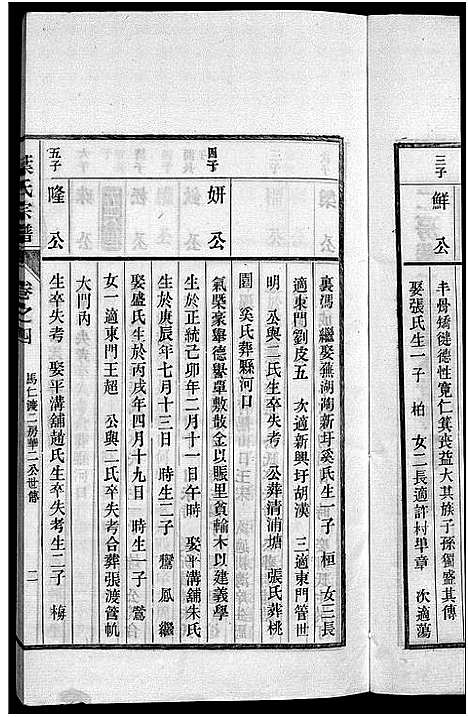 三子
鮮公
丰骨矯徤德性寬仁箕裘益大其族子孫獨盛其傳
娶張氏生一子 柏 女二長適許村畢章 次適蕩
裏馮 繼娶蕪湖湖新圩奚氏生一子 桓 女三長
適東門劉皮五 次適新興圩胡漢 三適東門管世
明 公與二氏生卒失考 公葬清浦塘 張氏葬桃
園 奚氏葬縣河口
四子
妍公
氣槩豪舉德譽單敷散金以賑里貧輸木以建義學
生於正統己卯年二月十一日午時 娶平溝舖朱氏
生於庚辰年七月十三日 時生二子 鸞 鳳 繼
娶盛氏生於丙戌年四月十九日 時生一子 鶯
女一適東門王超 公與二氏生卒失考合葬張渡管軌
大門內
五子
隆公
生卒失考 娶平溝舖趙氏生卒失考生二子 梅
氏宗譜
卷之四
馬仁渡二房華二公世傳
二